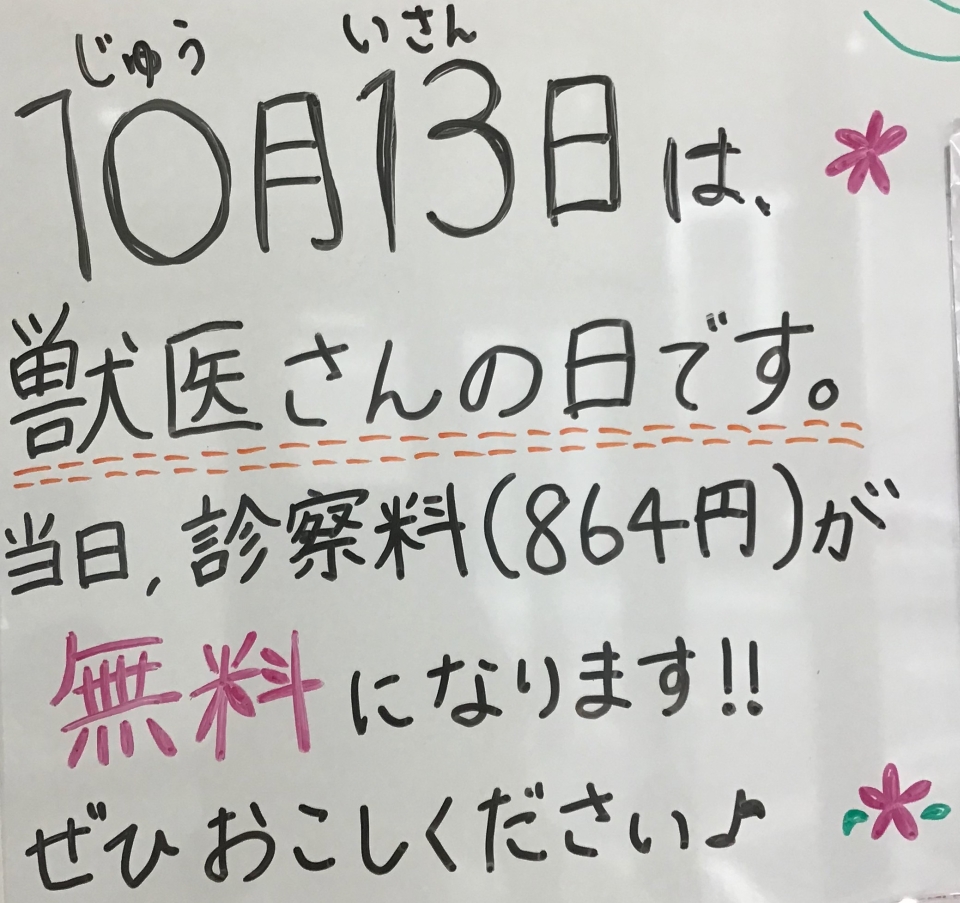 じゅう いさん
10月13日は、
獣医さんの日です。
当日,診察料(864円)が
無料になります!!
ぜひおこしください♪